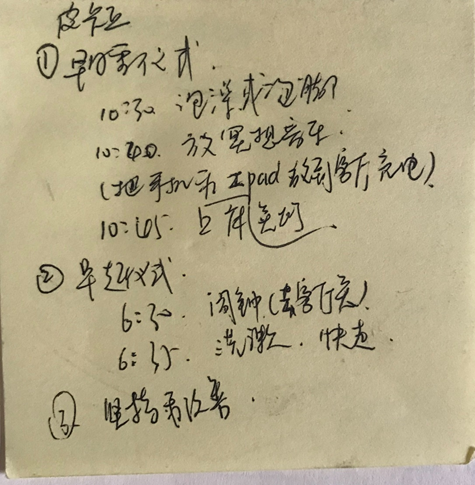 皮卡丘
① 早睡仪式.
10:30 泡澡或泡脚
10:40. 放冥想音乐.
(把手机和Ipad放到客厅充电).
10:45. 上床
② 早起仪式.
6:30. 闹钟(去客厅关).
6:35. 洗漱. 快走.
③ 坚持